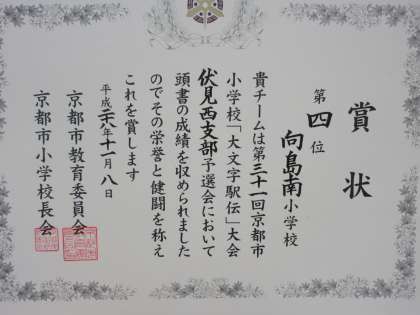 賞状
第四位
向島南小学校
貴チームは第三十一回京都市
小学校「大文字駅伝」大会
伏見西支部予選会において
頭書の成績を収められました
のでその栄誉と健闘を称え
これを賞します
平成二十八年十一月八日
京都市教育委員会
京都市小学校長会